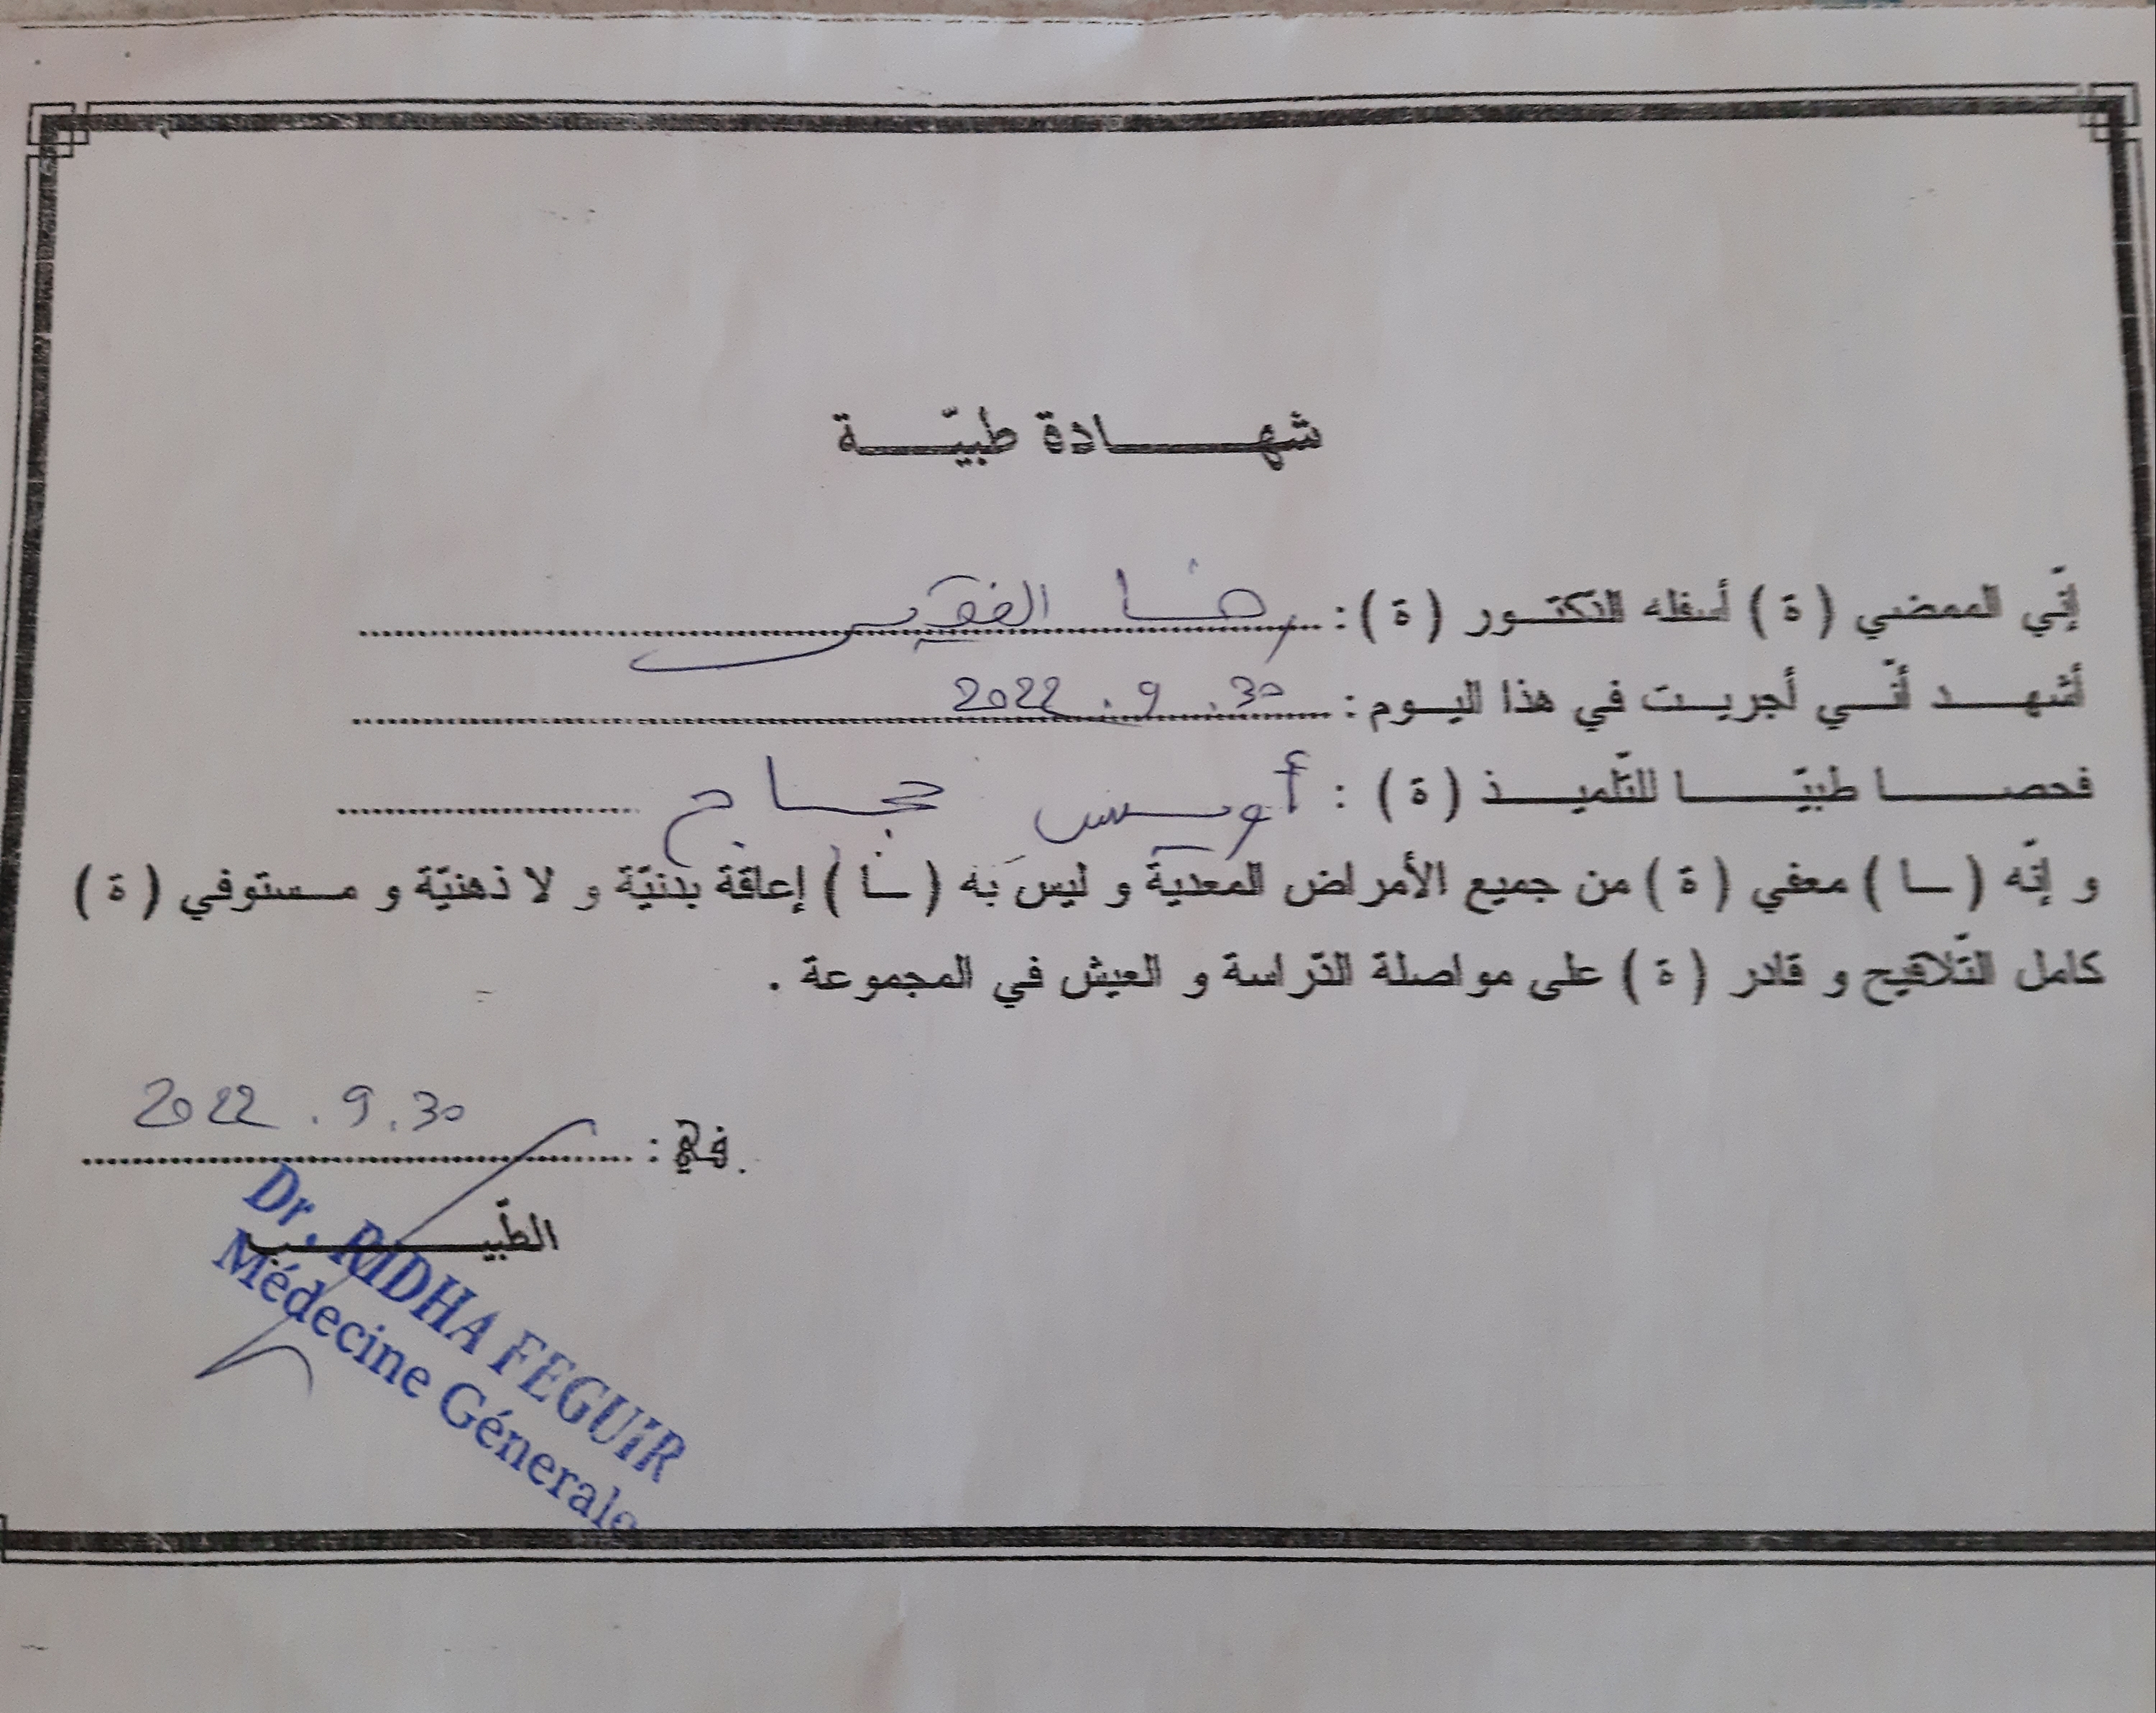 شهادة طبيّة
إنّي الممضي (ة) أسفله الدّكتور (ة): رضا الفقير
أشهد أنّي أجريت في هذا اليوم: 30. 9. 2022
فحصا طبيّا للتّلميذ (ة): أويس حجاج
و إنّه (ـا) معفي (ة) من جميع الأمراض المعدية و ليس به (ـا) إعاقة بدنيّة و لا ذهنيّة و مستوفي (ة)
كامل التّلاقيح و قادر (ة) على مواصلة الدّراسة و العيش في المجموعة.
في: 30. 9. 2022
الطّبيب
Dr. RIDHA FEGUIR
Médecine Génerale